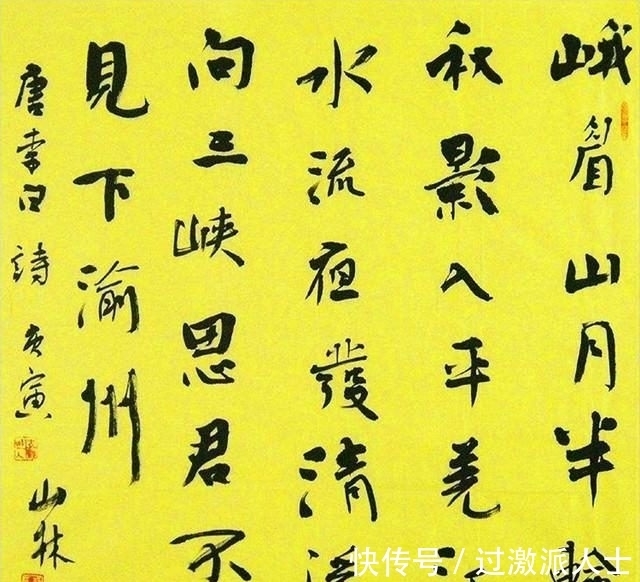 峨眉山月半
秋影入平羌
水流夜發清
向三峽思君不
見下渝州
唐李白詩 庚寅
山林
快传号 / 过激派人士